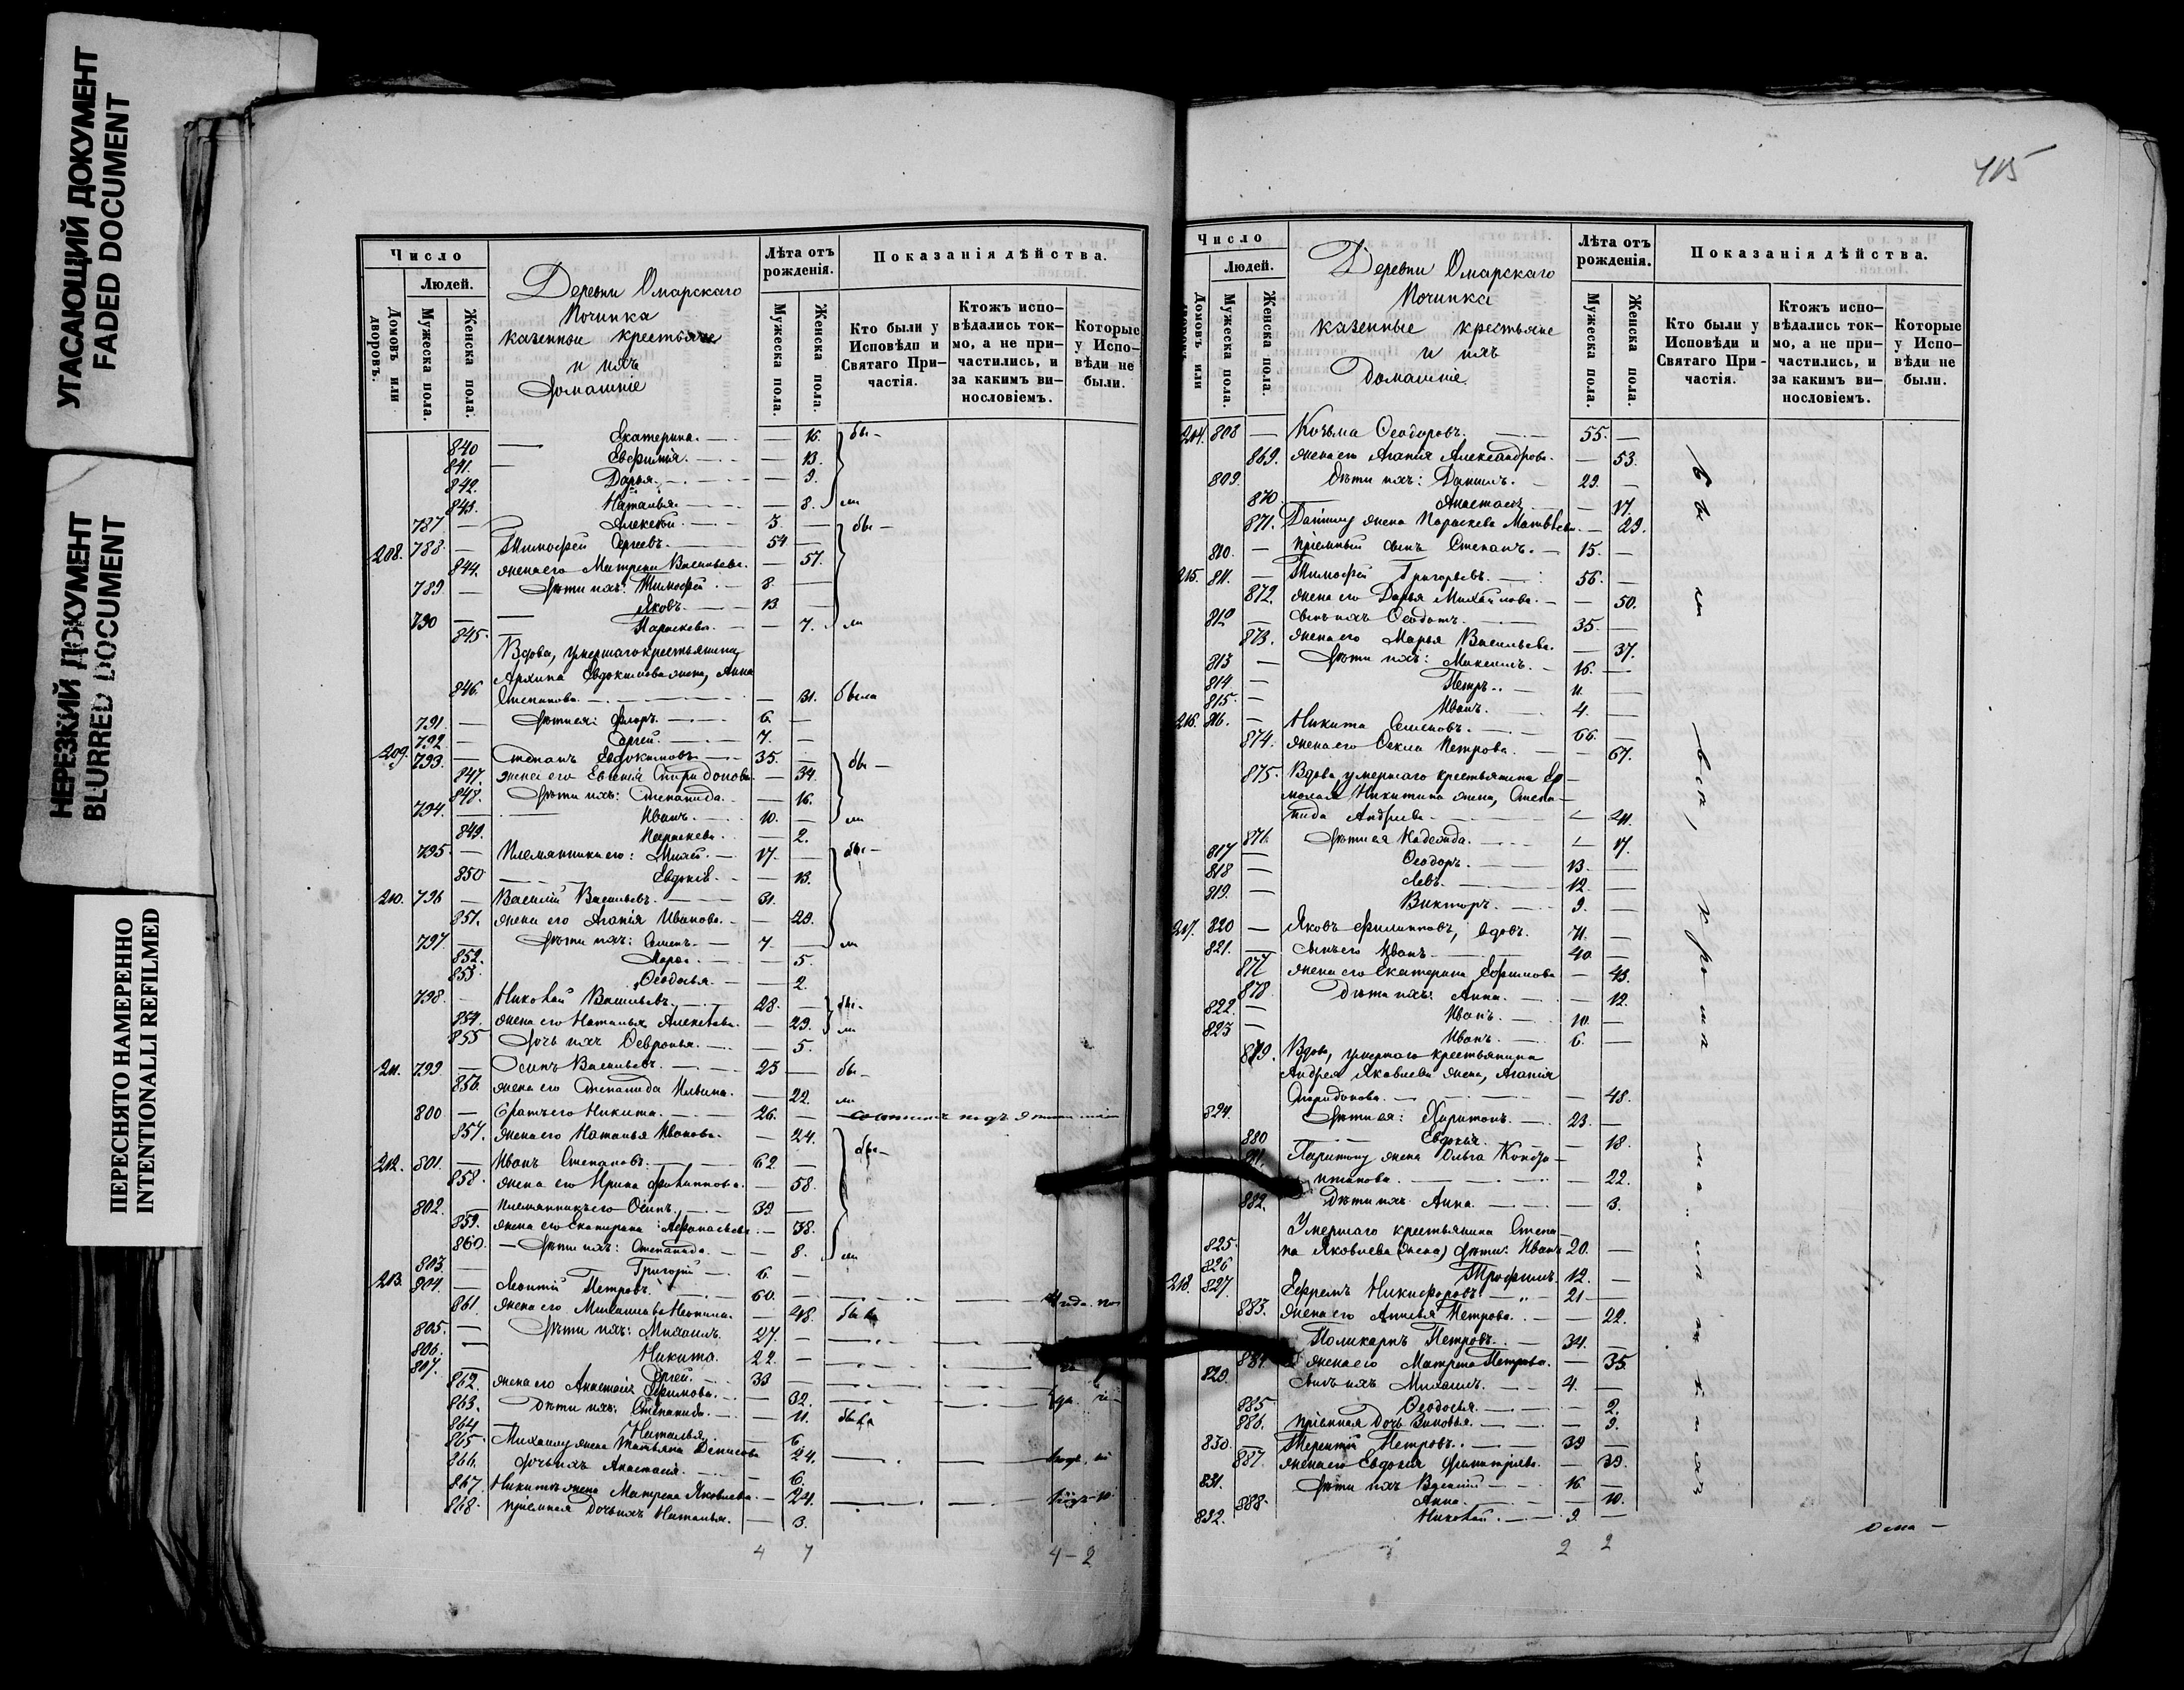 УГАСАЮЩИЙ ДОКУМЕНТ
FADED DOCUMENT
НЕРЕЗКИЙ ДОКУМЕНТ
BLURRED DOCUMENT
ПЕРЕСНЯТО НАМЕРЕННО
INTENTIONALLI REFILMED
Число
Людей.
Домовъ или дворовъ.
Мужеска пола.
Женска пола.
Деревни Омарскаго
Починка
казенные крестьяне
и ихъ
домашніе
Лѣта отъ рожденія.
Мужеска пола.
Женска пола.
Показанія дѣйства.
Кто были у Исповѣди и Святаго Причастія.
Ктожъ исповѣдались токмо, а не причастились, и за какимъ винословіемъ.
Которые у Исповѣди не были.
840 — Екатерина. — 16. бы-
841. — Евфимія. — 13.
842. Дарья. — 9.
843. Наталья. — 8. ли
787 — Алексѣй. 3. —
208. 788. — Тимофей Сергеевъ. 54 — бы-
844. жена его Матрена Васильева. — 51.
789. — Дѣти ихъ: Тимофей. 8. —
790 — Яковъ. 13 —
845. — Параскева. — 7. ли
Вдова, умершаго крестьянина
Архипа Евдокимова жена, Анна
846. Степанова. — 31. была
791. — Дѣти ея: Флоръ. 6. —
792. — Сергей. 7. —
209. 793. — Степанъ Евдокимовъ 35. — бы-
847. жена его Евгенія Спиридонова — 34.
848. Дѣти ихъ: Степанида. — 16.
794. — Иванъ. 10. — ли
849. Параскева. — 2.
795. — Племянники его: 17. — бы-
850 — Евдокія. — 13.
210. 796 — Василій Васильевъ. 31.
851. жена его Агапія Иванова. — 29.
797. — Дѣти ихъ: Семенъ. 7. — ли
852. — 5.
853. Ѳеодосья. — 2.
798. — Николай Васильевъ. 28. — бы-
854. жена его Наталья Алексѣева. — 29. ли
855 Дочь ихъ Февронья. — 5.
211. 799. — Осипъ Васильевъ. 25 — бы-
856. жена его Степанида Ильина. — 22. ли
800 — Братъ его Никита. 26. — состоитъ подъ
857. жена его Наталья Иванова. — 24.
212. 801. — Иванъ Степановъ. 62 — бы-
858. жена его Ирина Филиппова. — 58.
802. — Племянникъ его Осипъ. 39 —
859. жена его Екатерина Афанасьева. — 38.
860. — Дѣти ихъ: Степанида. — 8. ли
803. — Григорій 6. —
213. 804. — Леонтій Петровъ. 60. —
861 жена его — 48. была
805. — Дѣти ихъ: Михаилъ. 27. —
806. — Никита. 22. —
807. — Сергей. 33 —
862. жена его Анастасія Ефимова. — 32.
863. Дѣти ихъ: Степанида. — 11. была
864 — Наталья. — 6
865 Михаилу жена Татьяна Денисова 24.
866. дочь ихъ Анастасія. — 6.
867. Никитѣ жена Матрена Яковлева. — 24.
868. пріемная дочь ихъ Наталья. — 3.
4 7 4 - 2
415
Число
Людей.
Домовъ или дворовъ.
Мужеска пола.
Женска пола.
Деревни Омарскаго
Починка
казенные крестьяне
и ихъ
Домашніе.
Лѣта отъ рожденія.
Мужеска пола.
Женска пола.
Показанія дѣйства.
Кто были у Исповѣди и Святаго Причастія.
Ктожъ исповѣдались токмо, а не причастились, и за какимъ винословіемъ.
Которые у Исповѣди не были.
214. 808 — Козьма Ѳеодоровъ. 55. —
869. жена его Агапія Александрова. — 53.
809. Дѣти ихъ: Данилъ. 29. —
870. — Анастасія — 17.
871. Данилу жена Параскева Матвѣева. — 29.
810. — пріемный сынъ Степанъ. 15. —
215. 811. — Тимофей Григорьевъ. 56. —
872. жена его Дарья Михайлова. — 50.
812 — сынъ ихъ Ѳеодотъ. 35. —
873. жена его Марья Васильева. — 37.
813 — Дѣти ихъ: Максимъ. 16. —
814. — Петръ. 11. —
815. — Иванъ. 4. —
216. 816. — Никита Семеновъ. 66. —
874. жена его Ѳекла Петрова. — 67.
875. Вдова умершаго крестьянина Ер-
молая Никитина жена, Степа-
нида Андреева. — 41.
876. Дѣти ея Надежда. — 17.
817 — Ѳеодоръ. 13. —
818 — Левъ. 12. —
819. — Викторъ. 9. —
217. 820 — Яковъ Филипповъ, вдовъ. 71. —
821. — Сынъ его Иванъ. 40. —
877 жена его Екатерина Ефимова — 43.
878. Дѣти ихъ: Анна. — 12.
822. — Иванъ. 10. —
823 — Иванъ. 6. —
879. Вдова, умершаго крестьянина
Андрея Яковлева жена, Агапія
Спиридонова. — 48.
824. Дѣти ея: Харитонъ. 23. —
880 — Евдокія. — 18.
881. Харитону жена Ольга Конста-
нтинова. — 22.
882. Дѣти ихъ Анна. — 3.
Умершаго крестьянина Степа-
825. на Яковлева (жена) дѣти: Иванъ 20. —
826 Трофимъ. 12. —
218. 827. Ефремъ Никифоровъ 21 —
883. жена его Петрова. — 22.
Поликарпъ Петровъ. 34. —
884. жена его Матрена Петрова. — 35.
829. сынъ ихъ Михаилъ. 4. —
885 Ѳеодосья. — 2.
886. пріемная дочь Зиновья. — 9.
830. — Терентій Петровъ. 39 —
887. жена его Евдокія Димитріева. — 39.
831. Дѣти ихъ Василій 16. —
888. Анна. — 10.
832. Николай. 9. —
2 2